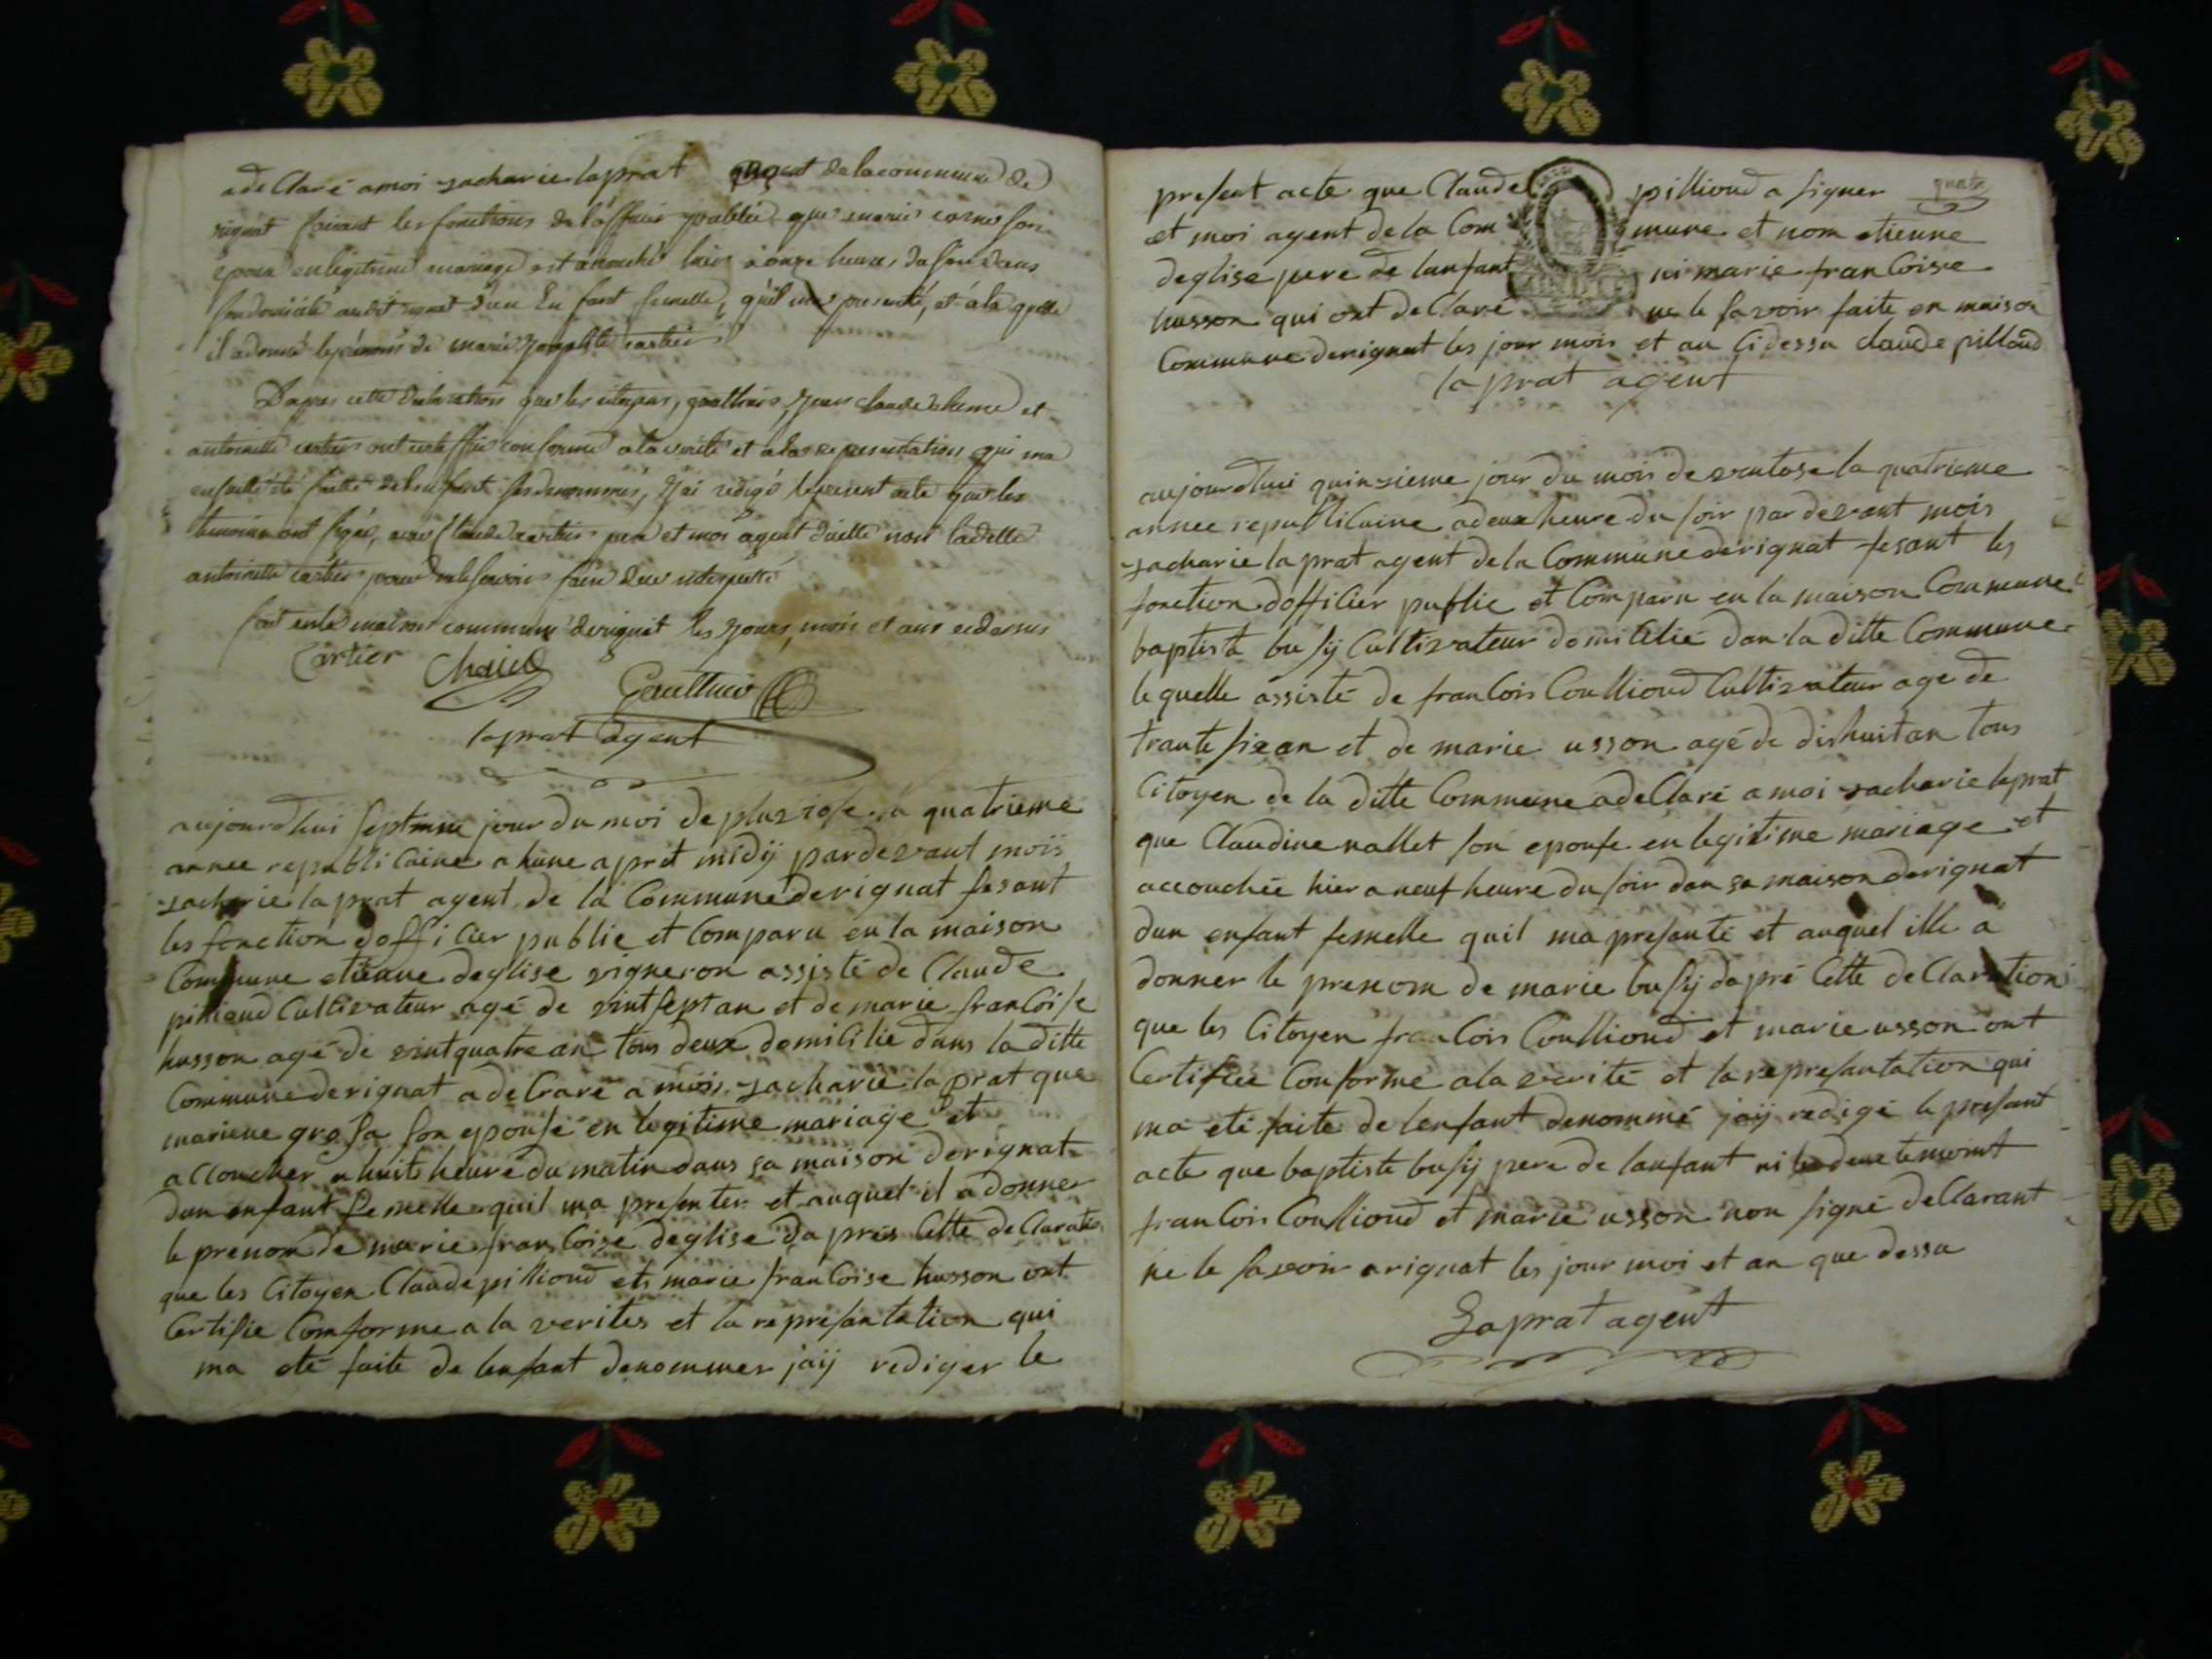 adeClaré amoi zacharie laprat agent de la commune de
rignat faisant les fonctions de l'officier publice que marie corne son
epouse en legitime mariage est accouché hier à onze heures du soir dans
son domicile audit rignat d'un En fant femelle, qu'il ma presenté, et a la quelle
il a donné le prénoms de marie Josephte cartier
D'apres cette declaration que les citoyens, gaulthier, Jean claude chene et
antoinette cartier ont certiffié conforme a la verité et a la representation qui ma
ensuitte été faitte de l'enfant susdenommés, J'ai redigé le present acte que les
temoins ont signé, avec Claude cartier pere et moi agent d'icelle non ladette
antoinette cartier pour ne le savoir faire de ce interpellé
fait en la maison commune de rignat les jours, mois et ans cidessus
Cartier Gaulthier
laprat agent
aujourdhui septieme jour du moi de pluziose la quatrieme
annee republicaine a hune apret midÿ pardevant moïs
zacharie laprat agent de la Commune de rignat fesant
les fonction d'officier public et Comparu en la maison
Commune etienne deglise vigneron assisté de Claude
pilliond Cultivateur agé de vint sept an et de marie francoise
husson agé de vint quatre an tous deux domicilie dans la ditte
Commune de rignat a declaré a mois zacharie laprat que
mariene grosa son epouse en legitime mariage et
accoucher a huit heure du matin dans sa maison de rignat
dun enfant femelle quil ma presenter et auquel il a donner
le prenom de marie francoise deglise da pres Cette deClaration
que les Citoyen Claude pilliond et marie francoise husson ont
Certifie Comforme a la verites et la represantation qui
ma eté faite de lenfant denommer jaÿ rediger le
quatre
present acte que Claude pilliond a signer
et moi agent de la Commune et nom etienne
deglise pere de lanfant ni marie francoise
husson qui ont deClaré ne le savoir faite en maison
Commune derignat les jour mois et an Cidessu claude pilloud
laprat agent
aujourdhui quinzieme jour du mois de ventose la quatrieme
annee republicaine a deux heure du soir par devant mois
zacharie laprat agent de la Commune derignat fesant les
fonction dofficier public et Comparu en la maison Commune
baptiste busÿ Cultivateur domicilié dan la ditte Commune
lequelle assisté de francois Coulliond Cultivateur age de
trante six an et de marie usson agé de dishuit an tous
Citoyen de la ditte Commune a deClaré a moi zacharie laprat
que Claudine nallet son epouse en legitime mariage et
accouchée hier a neuf heure du soir dan sa maison derignat
dun enfant femelle quil ma presanté et auquel ille a
donner le prenom de marie busÿ dapré Cette deClaration
que les Citoyen francois Coulliond et marie usson ont
Certifiee Conforme a la verité et la represantation qui
ma eté faite de lenfant denommé jaÿ redigé le presant
acte que baptiste busÿ pere de lanfant ni le deux temoint
francois Coulliond et marie usson non signé deClarant
ne le savoir a rignat les jour moi et an que dessu
Laprat agent